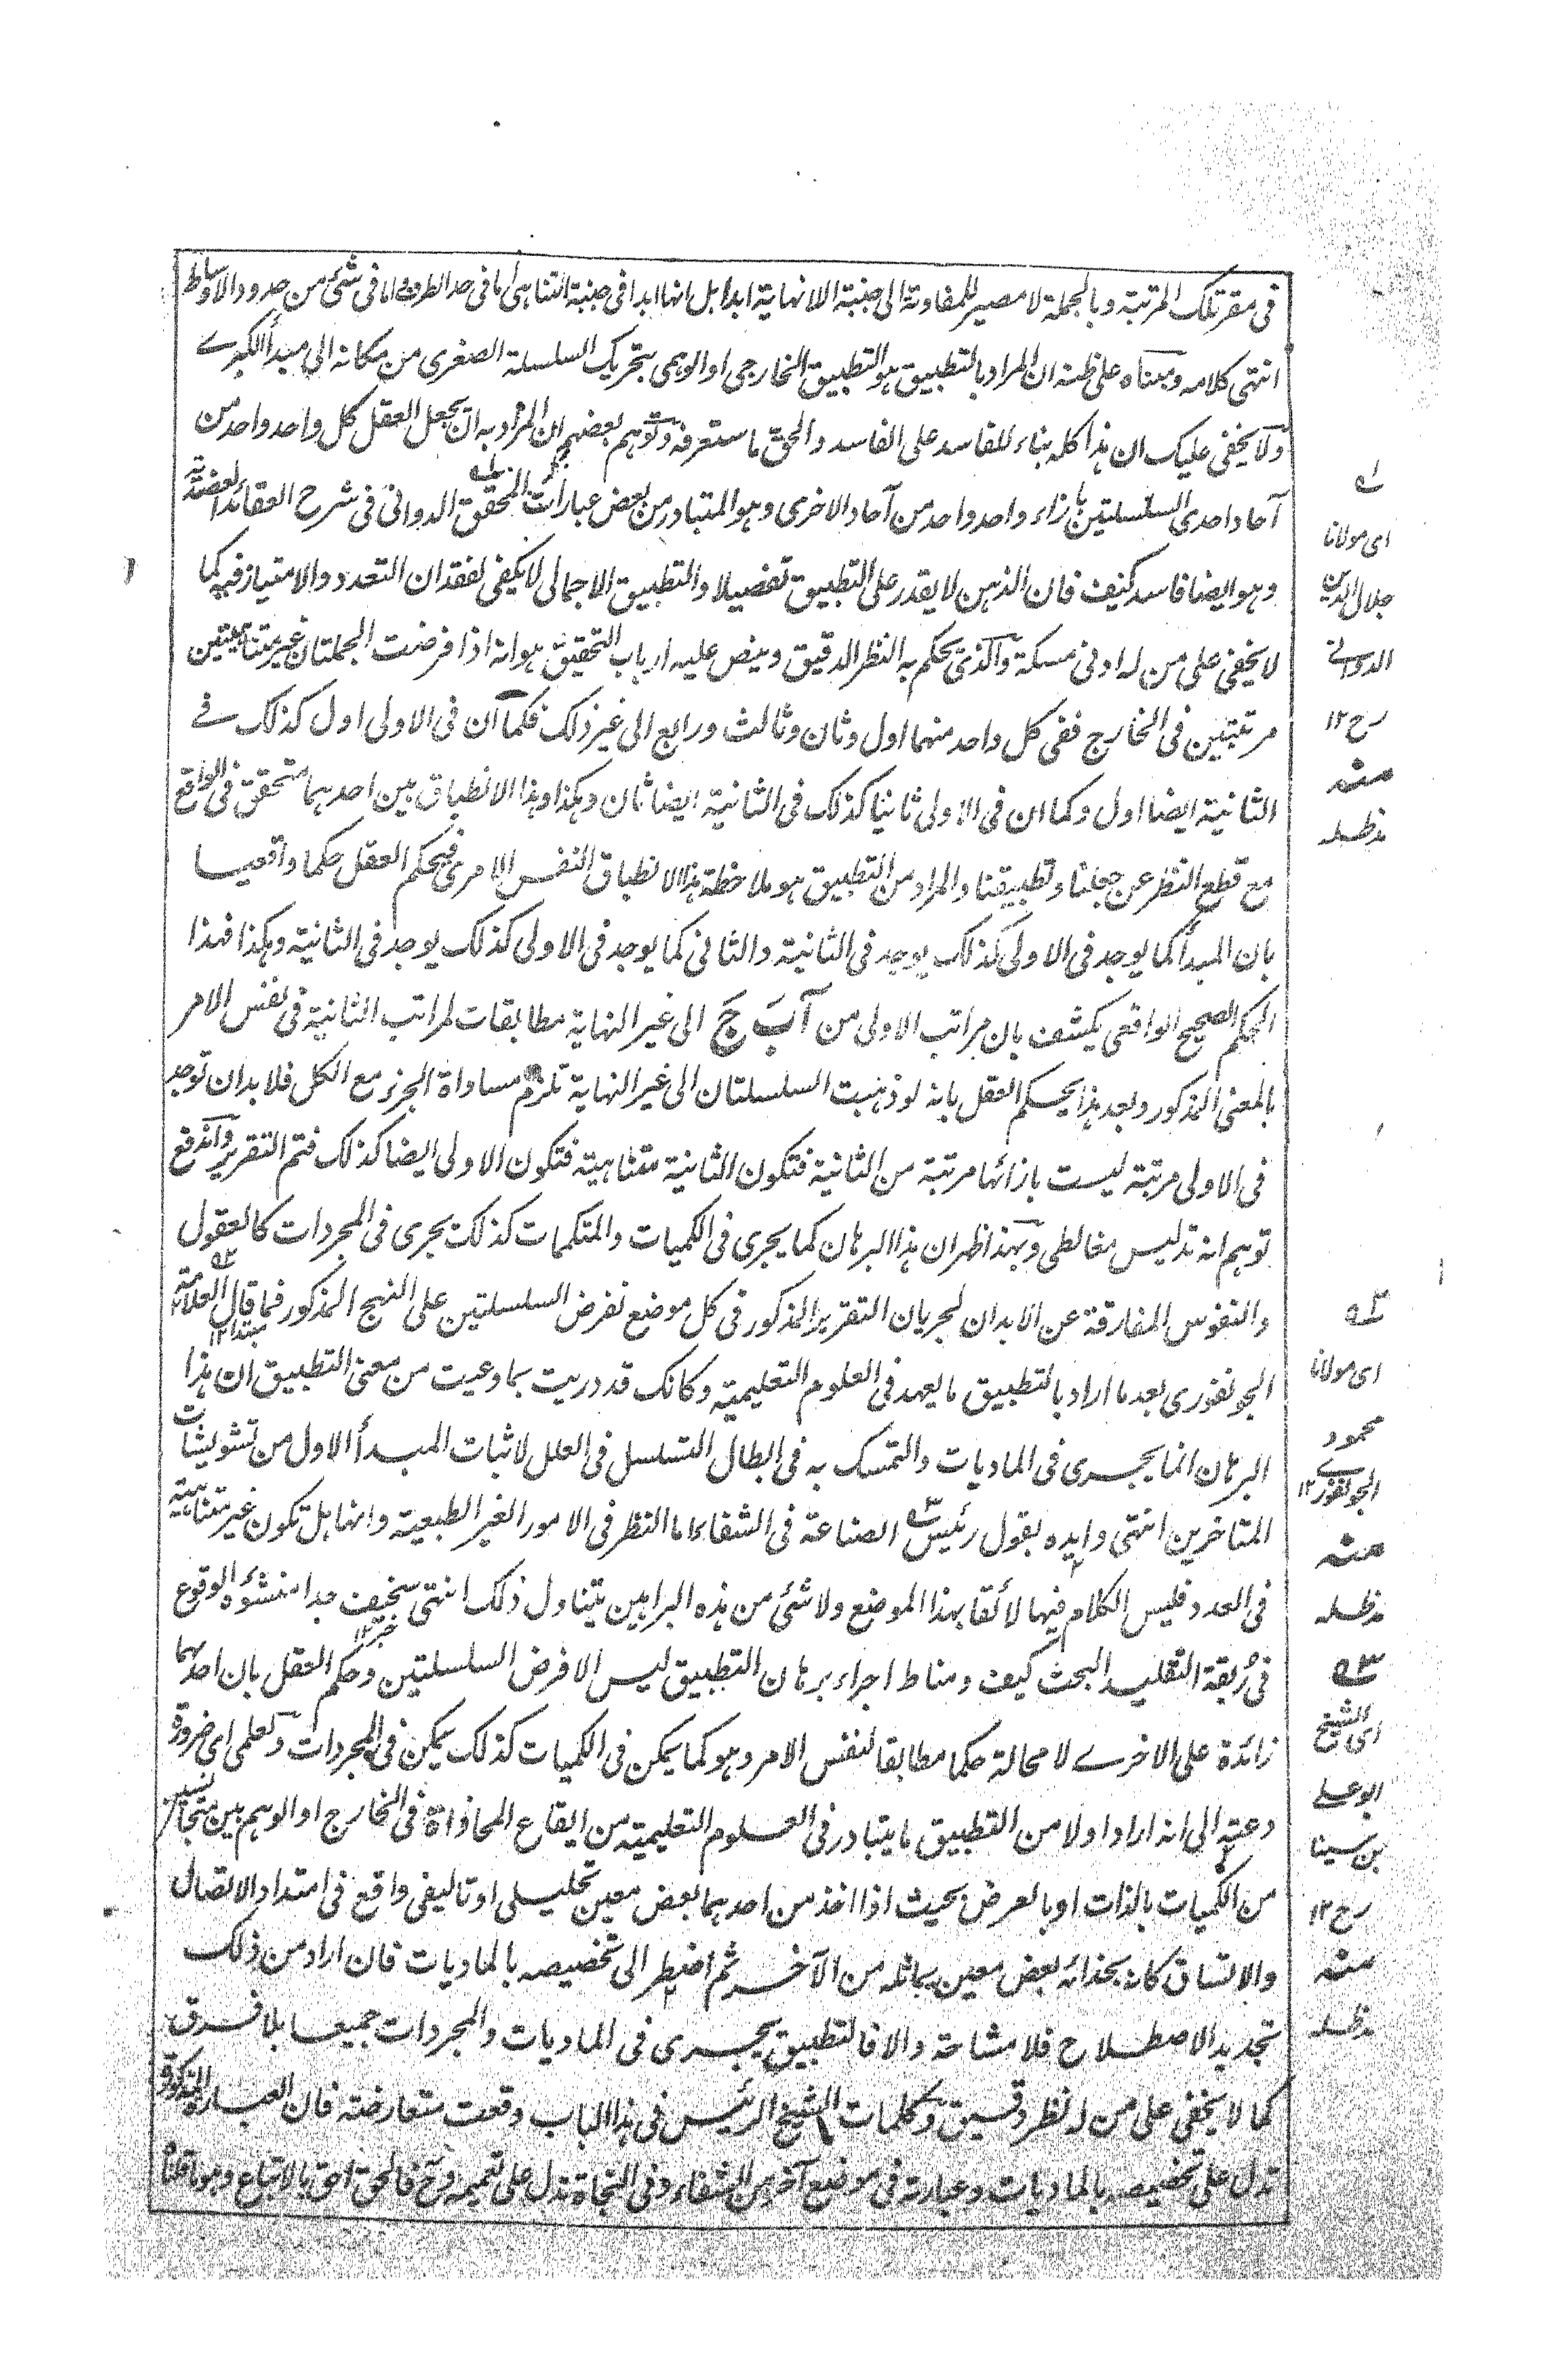 فى مقر تلك المرتبة وبالجملة لا مصير للمفاوتة الى جنبة اللانهاية ابدا بل انها ابدا فى جنبة التناهى اما فى حد الطرف واما فى شئ من حدود الاوساط
انتهى كلامه ومبناه على ظنه ان المراد بالتطبيق هو التطبيق الخارجى او الوهمى بتحريك السلسلة الصغرى من مكانه الى مبدأ الكبرے
ولا يخفى عليك ان هذا كله بناء للفاسد على الفاسد والحق ما ستعرفه وتوهم بعضهم ان المراد به ان يجعل العقل كل واحد واحد من
آحاد احدى السلسلتين بازاء واحد واحد من آحاد الاخرى وهو المتبادر من بعض عبارات المحقق الدوانى فى شرح العقائد العضدية
وهو ايضا فاسد كيف فان الذهن لا يقدر على التطبيق تفصيلا والتطبيق الاجمالى لا يكفى لفقدان التعدد والامتياز فيه كما
لا يخفى على من له ادنى مسكة والذى يحكم به النظر الدقيق وينص عليه ارباب التحقيق هو انه اذا فرضت الجملتان غير متناهيتين
مرتبتين فى الخارج ففى كل واحد منهما اول وثان وثالث ورابع الى غير ذلك فكما ان فى الاولى اول كذلك فے
الثانية ايضا اول وكما ان فى الاولى ثانيا كذلك فى الثانية ايضا ثان وهكذا وهذا الانطباق بين احدهما متحقق فى الواقع
مع قطع النظر عن جعلنا وتطبيقنا والمراد من التطبيق هو ملاحظة هذا الانطباق النفس الامرى فيحكم العقل حكما واقعيا
بان المبدأ كما يوجد فى الاولى كذلك يوجد فى الثانية والثانى كما يوجد فى الاولى كذلك يوجد فى الثانية وهكذا فهذا
الحكم الصحيح الواقعى يكشف بان مراتب الاولى من آ بَ جَ الى غير النهاية مطابقات لمراتب الثانية فى نفس الامر
بالمعنى المذكور وبعد هذا يحكم العقل بانه لو ذهبت السلسلتان الى غير النهاية تلزم مساواة الجزء مع الكل فلا بد ان توجد
فى الاولى مرتبة ليست بازائها مرتبة من الثانية فتكون الثانية متناهية فتكون الاولى ايضا كذلك فتم التقرير واندفع
توهم انه تدليس مغالطى وبهذا ظهر ان هذا البرهان كما يجرى فى الكميات والمتكممات كذلك يجرى فى المجردات كالعقول
والنفوس المفارقة عن الابدان لجريان التقرير المذكور فى كل موضع نفرض السلسلتين على النهج المذكور فما قال العلامة
مبتدا ١٢
الجونفورى بعد ما اراد بالتطبيق ما يعهد فى العلوم التعليمية وكانك قد دريت بما وعيت من معنى التطبيق ان هذا
البرهان انما يجرى فى الماديات والتمسك به فى ابطال التسلسل فى العلل لاثبات المبدأ الاول من تشويشات
المتاخرين انتهى وايده بقول رئيس الصناعة فى الشفاء اما النظر فى الامور الغير الطبعية وانها هل تكون غير متناهية
فى العدد فليس الكلام فيها لائقا بهذا الموضع ولا شئ من هذه البراهين يتناول ذلك انتهى سخيف جدا منشؤه الوقوع
خبر ١٢
فى ربقة التقليد البحت كيف ومناط اجراء برهان التطبيق ليس الا فرض السلسلتين وحكم العقل بان احدهما
زائدة على الاخرے لا محالة حكما مطابقا لنفس الامر وهو كما يمكن فى الكميات كذلك يمكن فى المجردات ولعلمى اى ضرورة
دعته الى انه اراد اولا من التطبيق ما يتبادر فى العلوم التعليمية من ايقاع المحاذاة فى الخارج او الوهم بين متجانسين
من الكميات بالذات او بالعرض بحيث اذا اخذ من احدهما بعض معين تحليلى او تاليفى واقع فى امتداد الاتصال
والاتساق كان بحذائه بعض معين يماثله من الآخر ثم اضطر الى تخصيصه بالماديات فان اراد من ذلك
تجديد الاصطلاح فلا مشاحة والا فالتطبيق يجرى فى الماديات والمجردات جميعا بلا فرق
كما لا يخفى على من له نظر دقيق وكلمات الشيخ الرئيس فى هذا الباب وقعت متعارضة فان العبارة المذكورة
تدل على تخصيصه بالماديات وعبارته فى موضع آخر من الشفاء وفى النجاة تدل على تعميمه وح فالحق احق بالاتباع وهو ما قلنا
له
اى مولانا
جلال الدين
الدوانے
رح ١٢
منه
مد ظله
ٰ٢ه
اى مولانا
محمود
الجونفورے ١٢
منه
مد ظله
٣ه
اى الشيخ
ابو علے
بن سينا
رح ١٢
منه
مد ظله